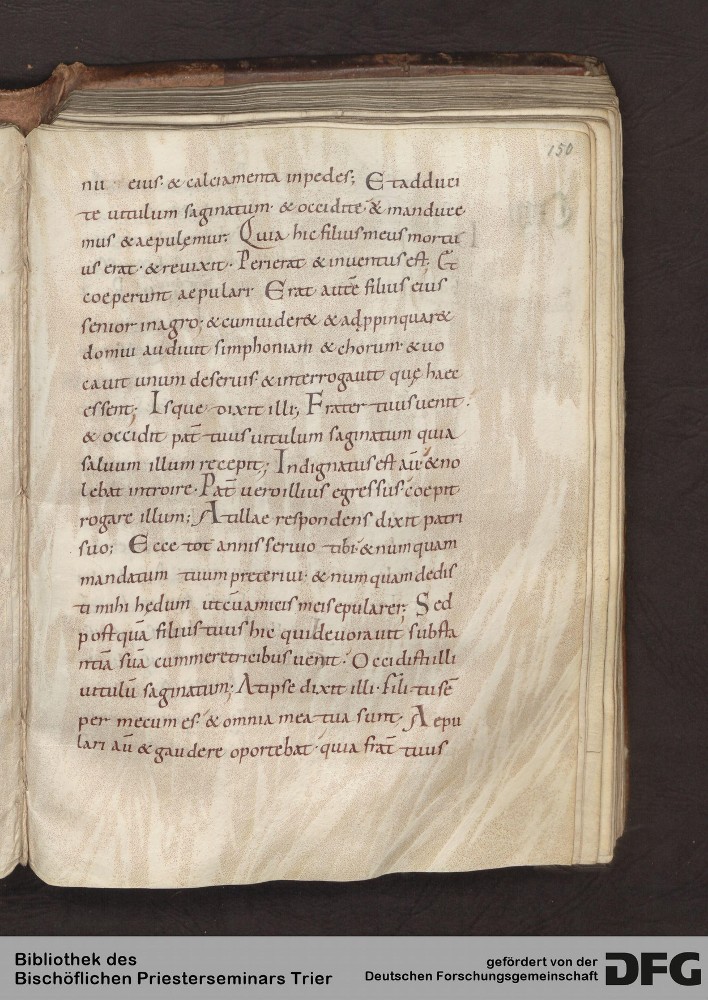 150
nu eius· & calciamenta inpedes; Et adduci
te uitulum saginatum· & occidite· & manduce
mus & aepulemur; Quia hic filius meus mortu
us erat· & reuixit· Perierat & inuentus est; Et
coeperunt aepulari Erat autē filius eius
senior inagro; & cumuider& & adppinquar&
domui audiuit simphoniam & chorum· & uo
cauit unum deseruis· & interrogauit quę haec
essent; Isque dixit illi; Frater tuus uenit·
& occidit pat̄ tuus uitulum saginatum quia
saluum illum recepit; Indignatus est aū· & no
lebat introire· Pat̄ uero illius egressus· coepit
rogare illum; At illae respondens dixit patri
suo; Ecce tot annis seruio tibi· & numquam
mandatum tuum preteriui· & numquam dedis
ti mihi hedum ut cū amicis meis epularer; Sed
postquā filius tuus hic qui deuorauit substa
ntiā suā cum meretricibus uenit· Occidisti illi
uitulū saginatum; At ipse dixit illi· Fili· tu sē
per mecum es· & omnia mea tua sunt· Aepu
lari aū & gaudere oportebat· quia frat̄ tuus
Bibliothek des
Bischöflichen Priesterseminars Trier
gefördert von der
Deutschen Forschungsgemeinschaft
DFG